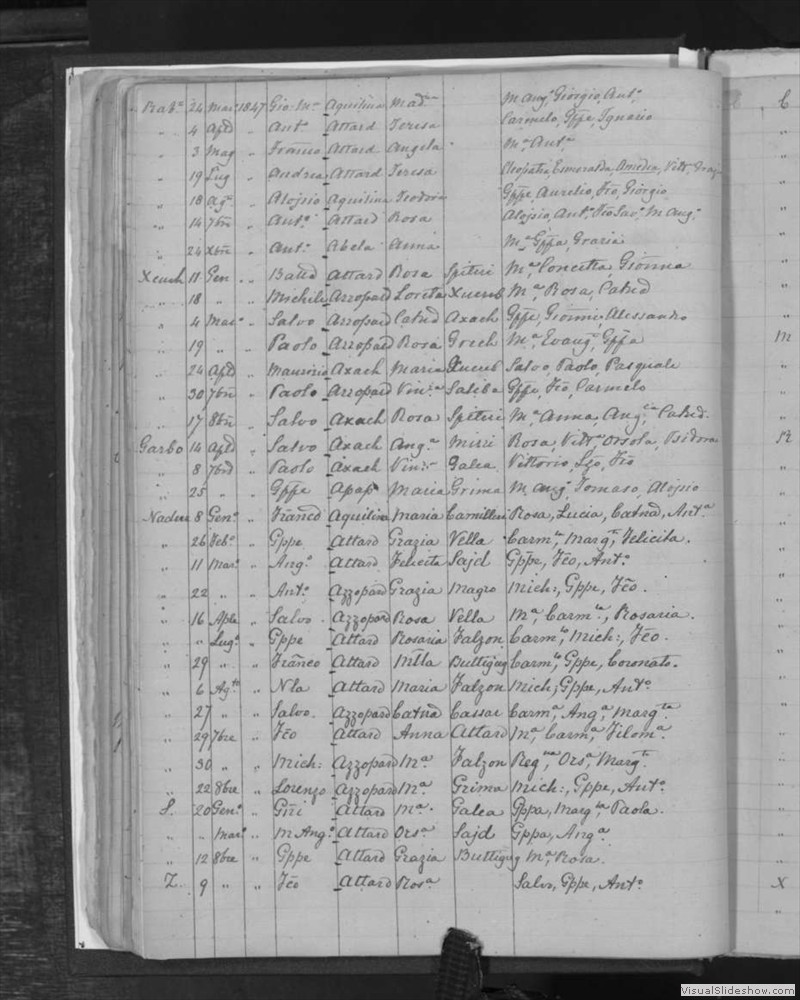 Rab.o 24 Mar.o 1847 Gio: M.a Aquilina Mad.a M. Ang.o, Giorgio, Ant.o
" 4 Apl " Ant.o Attard Teresa Carmelo, Gppe, Ignazio
" 3 Mag " Franco Attard Angela M.a, Ant.a
" 19 Lug " Andrea Attard Teresa Cleopatra, Esmeralda, Amedea, Vitt.o
" 18 Ag.o " Aloisio Aquilina Teodora Gppe, Aurelio, Fco, Giorgio
" 14 7bre " Ant.o Attard Rosa Aloisio, Ant.o, Fco Sav.o, M. Ang.o
" 24 Xbre " Ant.o Abela Anna M.a Gppa, Grazia
Xeuch 11 Gen " Batta Attard Rosa Spiteri M.a, Concetta, Gionna
" 18 " " Michele Azzopard Loreta Xucreb M.a, Rosa, Catnd
" 4 Mar.o " Salvo Azzopard Catnd Axach Gppe, Alessandro
" 19 " " Paolo Azzopard Rosa Grech M.a, Evang.a, Gppa
" 24 Apl " Maurizio Axach Maria Xucreb Salvo, Paolo, Pasquale
" 30 7bre " Paolo Azzopard Vin.a Saliba Gppe, Fco, Carmelo
" 17 8bre " Salvo Axach Rosa Spiteri M.a Anna, Ang.ca, Catnd.
Garbo 14 Apl " Salvo Axach Ang.a Mizzi Rosa, Vitt.a Orsola, Isidora
" 8 7bre " Paolo Axach Vin.a Galea Vittorio, Fco
" 25 " " Gppe Apap Maria Grima M. Ang.o, Tomaso, Aloisio
Nadur 8 Gen.o " Franco Aquilina Maria Camilleri Rosa, Lucia, Catnad, Ant.a
" 26 Feb.o " Gppe Attard Grazia Vella Carm.a, Marg.ta, Felicita.
" 11 Mar.o " Ang.o Attard Felicita Sajd Gppe, Fco, Ant.o
" 22 " " Ant.o Azzopard Grazia Magro Mich:, Gppe, Fco.
" 16 Aple " Salvo Azzopard Rosa Vella M.a, Carm.la, Rosaria.
" " Lug.o " Gppe Attard Rosaria Falzon Carm.lo, Mich:, Fco.
" 29 " " Franco Attard Mtlla Buttigieg Carm.lo, Gppe, Coronato.
" 6 Ag.to " Nla Attard Maria Falzon Mich:, Gppe, Ant.o
" 27 " " Salvo. Azzopard Catnd Cassar Carm.a, Ang.a, Marg.ta
" 29 7bre " Fco Attard Anna Attard M.a, Carm.a, Filom.a
" 30 " " Mich: Azzopard M.a Falzon Reg.na, Ors.a, Marg.ta
" 22 8bre " Lorenzo Azzopard M.a Grima Mich:, Gppe, Ant.o
S. 20 Gen.o " Attard M.a Galea Gppa, Marg.ta, Paola.
" " Mar.o " M. Ang.o Attard Ors.a Sajd Gppa, Ang.a
" 12 8bre " Gppe Attard Grazia Buttigieg M.a Rosa.
Z. 9 " " Fco Attard Ros.a Salvo, Gppe, Ant.o
M
R
X
VisualSlideshow.com